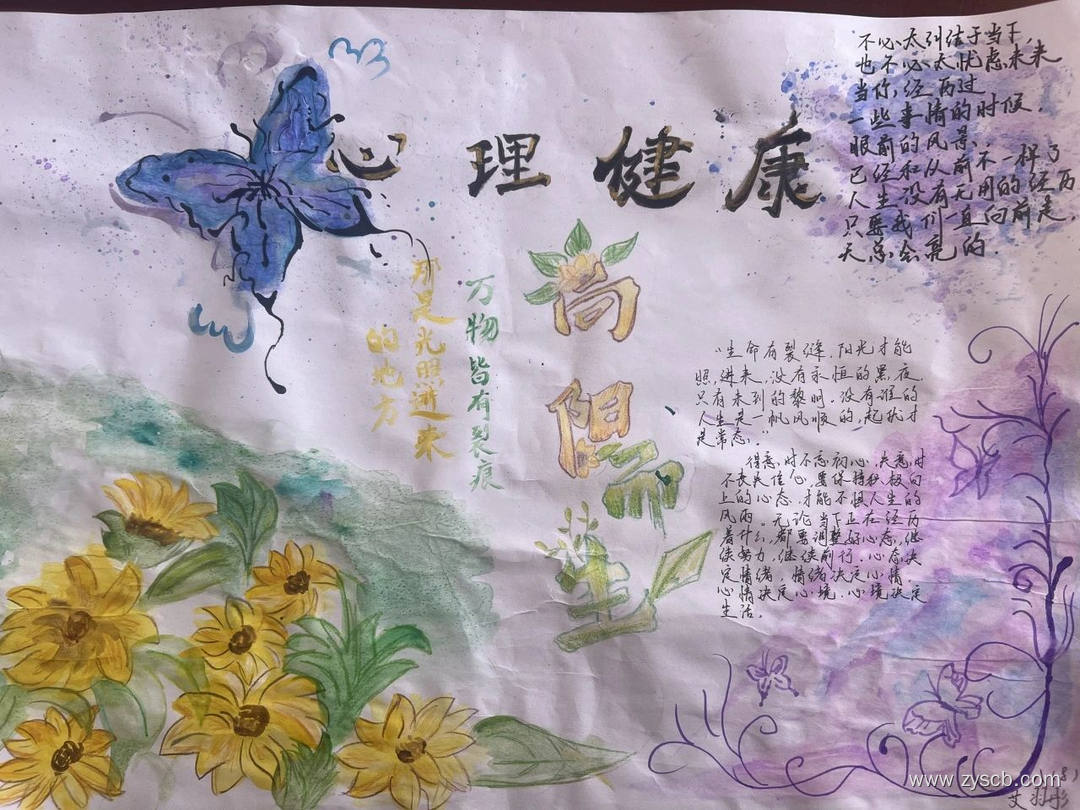 心理健康
不必太纠结于当下,
也不必太忧虑未来
当你经历过
一些事情的时候,
眼前的风景
已经和从前不一样了
人生没有无用的经历
只要我们一直向前走,
天总会亮的.
向
陽
而
生
万物皆有裂痕
那是光照进来
的地方
“生命有裂缝,阳光才能
照进来,没有永恒的黑夜,
只有未到的黎明,没有谁的
人生是一帆风顺的,起伏才
是常态.”
得意时不忘初心,失意时
不丧失信心,要保持积极向
上的心态,才能不惧人生的
风雨。无论当下正在经历
着什么,都要调整好心态,继
续努力,继续前行.心态决
定情绪,情绪决定心情,
心情决定心境,心境决定
生活。
www.zyscb.com